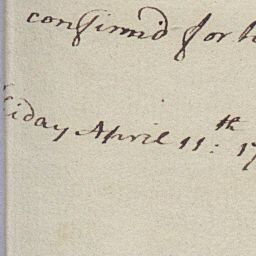 confirm'd for
Friday April 11:th 17